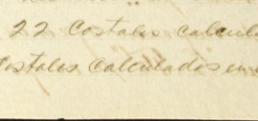 22 Costales calcula
Costales Calculados en